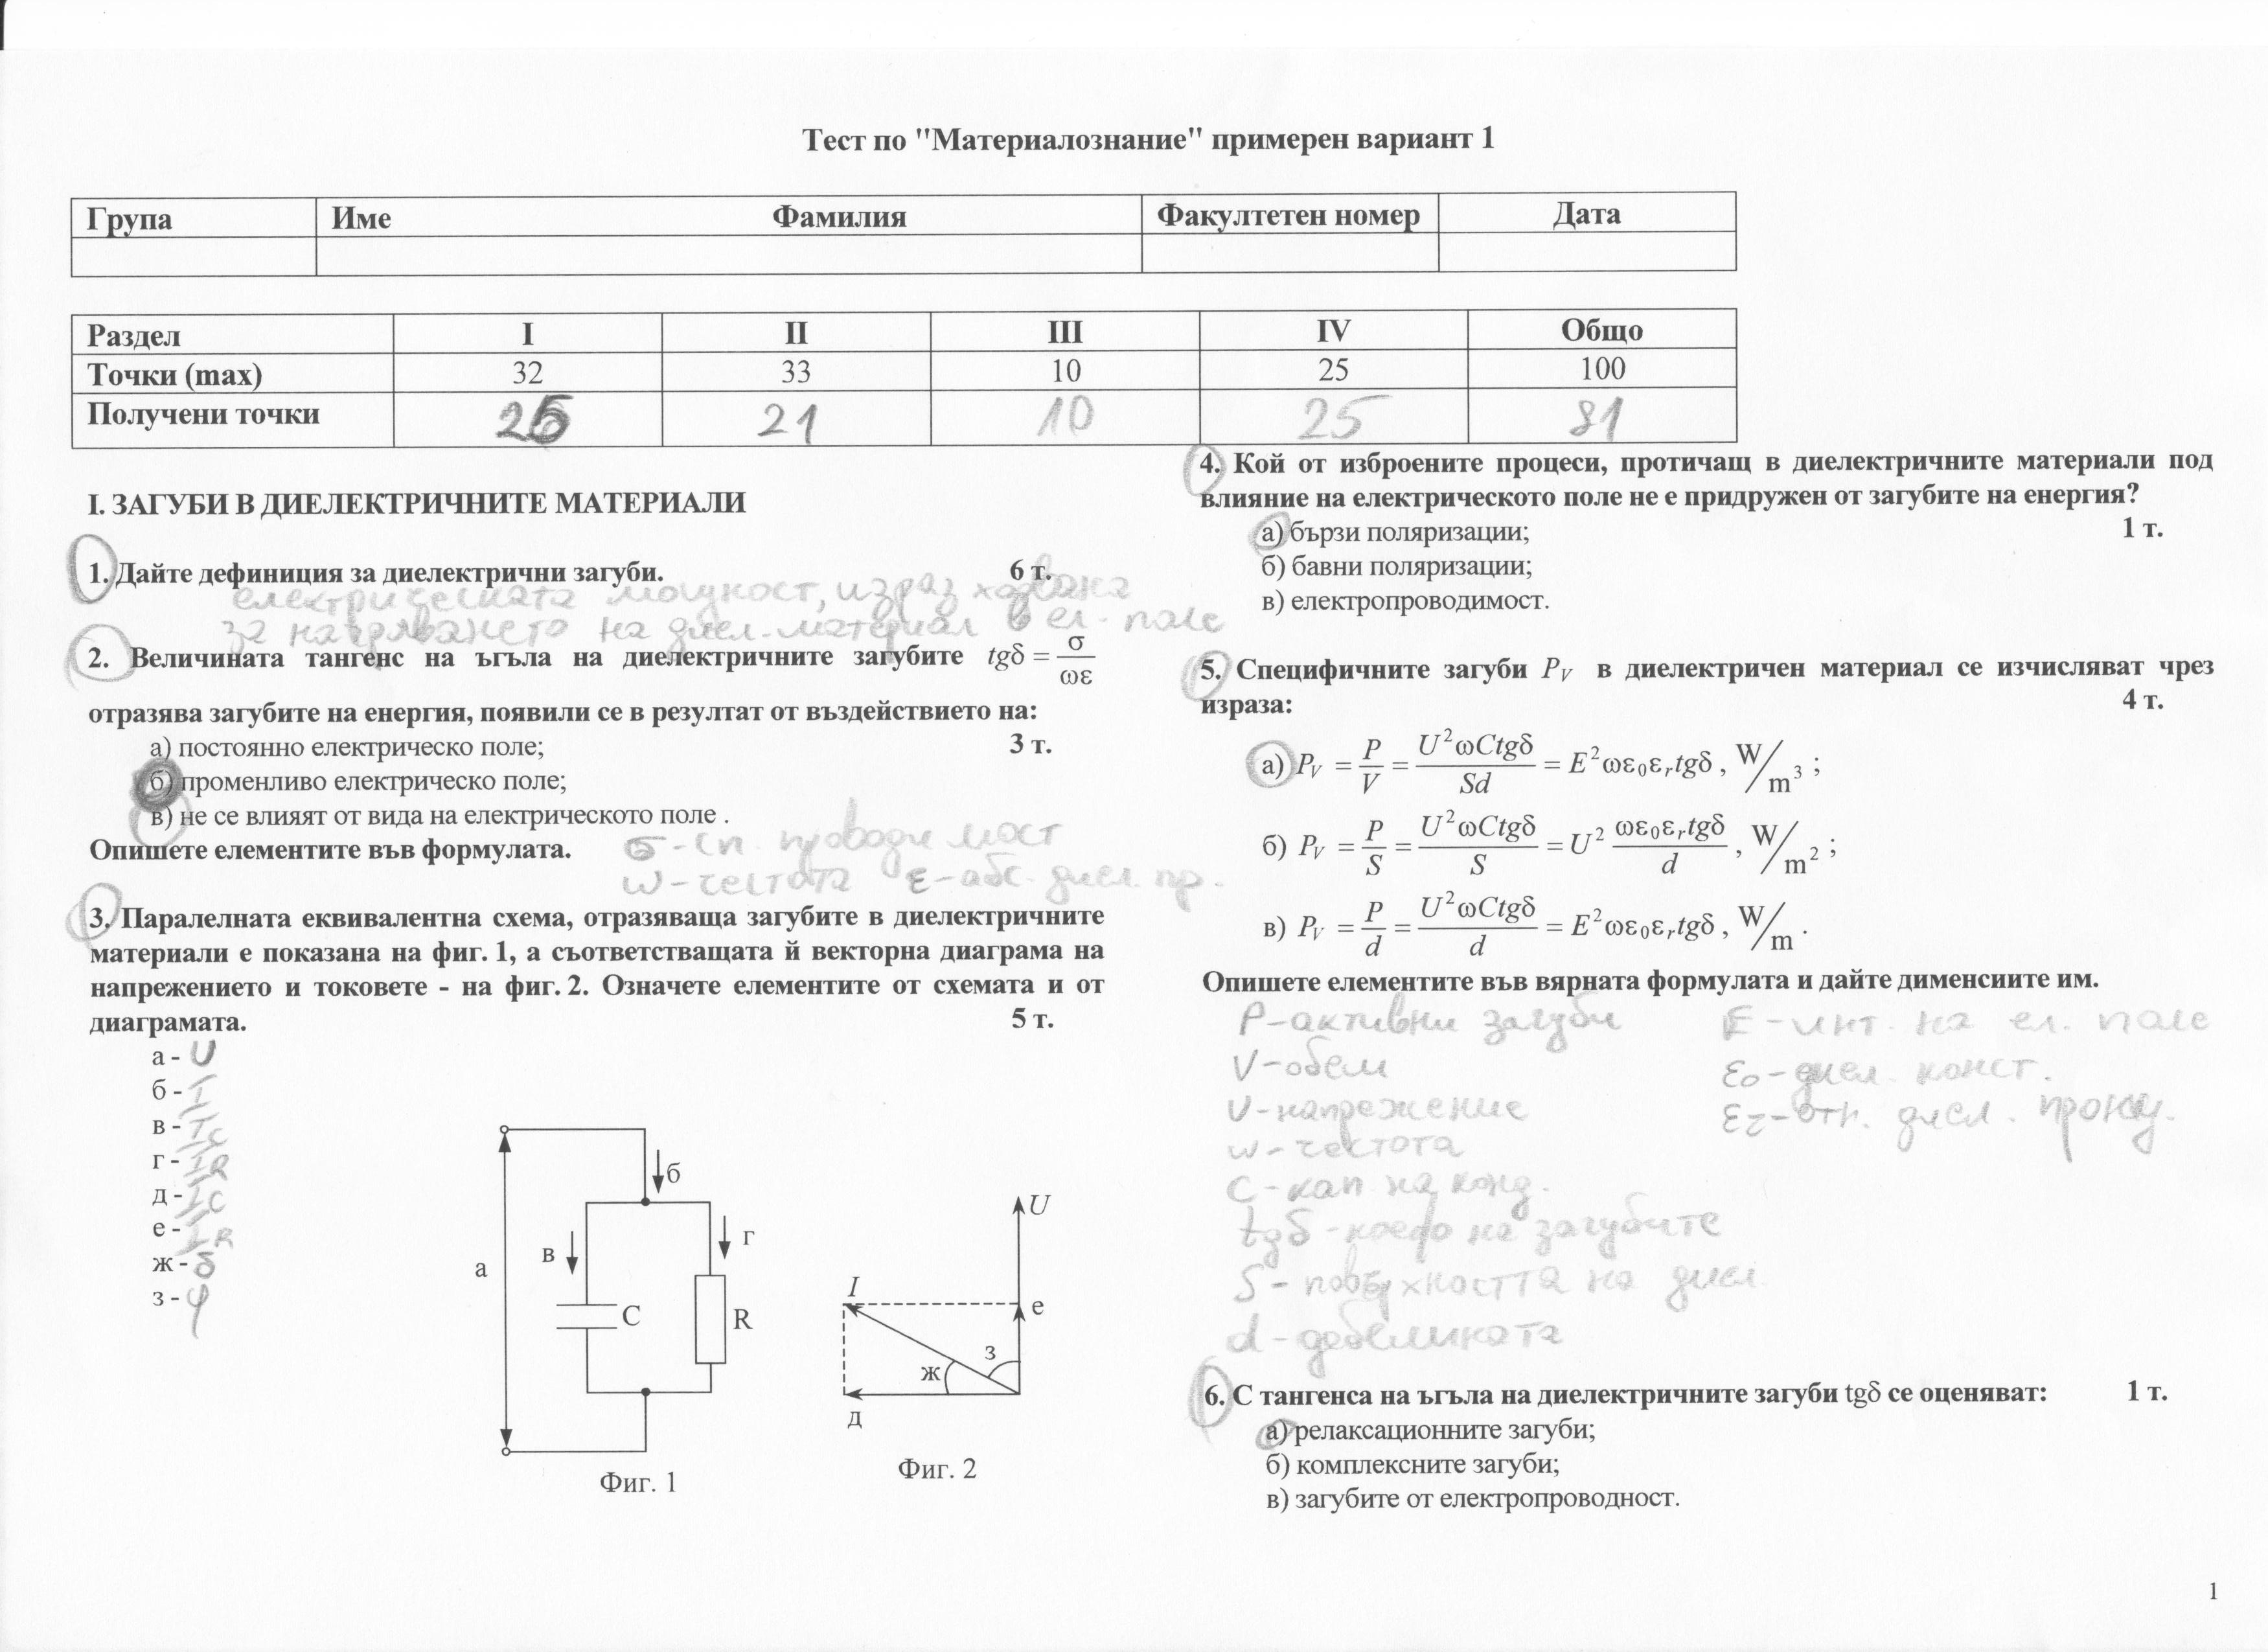 Тест по "Материалознание" примерен вариант 1
Група Име Фамилия Факултетен номер Дата
Раздел I II III IV Общо
Точки (max) 32 33 10 25 100
Получени точки 25 21 10 25 81
I. ЗАГУБИ В ДИЕЛЕКТРИЧНИТЕ МАТЕРИАЛИ
1. Дайте дефиниция за диелектрични загуби. 6 т.
електрическата мощност, изразходвана
за нагряването на диел. материал в ел. поле
2. Величината тангенс на ъгъла на диелектричните загубите tgδ = σ/ωε
отразява загубите на енергия, появили се в резултат от въздействието на:
а) постоянно електрическо поле; 3 т.
б) променливо електрическо поле;
в) не се влияят от вида на електрическото поле .
Опишете елементите във формулата. σ - сп. проводимост
ω - честота ε - абс. диел. пр.
3. Паралелната еквивалентна схема, отразяваща загубите в диелектричните
материали е показана на фиг. 1, а съответстващата й векторна диаграма на
напрежението и токовете - на фиг. 2. Означете елементите от схемата и от
диаграмата. 5 т.
а - U
б - I
в - Ic
г - IR
д - Ic
е - IR
ж - δ
з - φ
а
б
в
г
C
R
Фиг. 1
U
I
е
з
ж
д
Фиг. 2
4. Кой от изброените процеси, протичащ в диелектричните материали под
влияние на електрическото поле не е придружен от загубите на енергия?
а) бързи поляризации; 1 т.
б) бавни поляризации;
в) електропроводимост.
5. Специфичните загуби P_V в диелектричен материал се изчисляват чрез
израза: 4 т.
а) P_V = P/V = U²ωCtgδ/Sd = E²ωε₀ε_r tgδ , W/m³ ;
б) P_V = P/S = U²ωCtgδ/S = U² ωε₀ε_r tgδ/d , W/m² ;
в) P_V = P/d = U²ωCtgδ/d = E²ωε₀ε_r tgδ , W/m .
Опишете елементите във вярната формулата и дайте дименсиите им.
P - активни загуби E - инт. на ел. поле
V - обем ε₀ - диел. конст.
U - напрежение ε_r - отн. диел. прониц.
ω - честота
C - кап. на конд.
tgδ - коеф на загубите
S - повърхността на диел.
d - дебелината
6. С тангенса на ъгъла на диелектричните загуби tgδ се оценяват: 1 т.
а) релаксационните загуби;
б) комплексните загуби;
в) загубите от електропроводност.
1